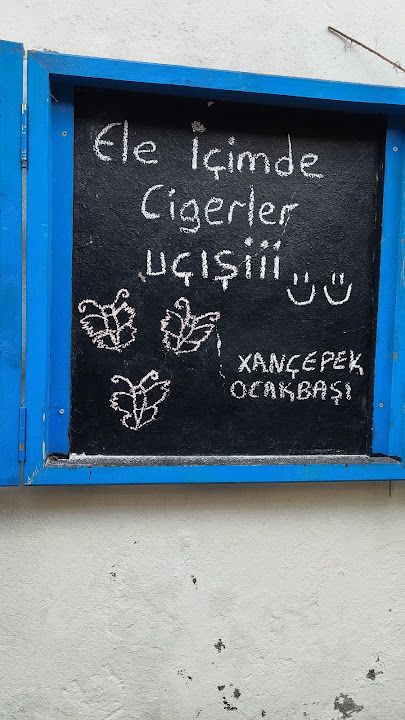 Ele İçimde
Cigerler
uçışiii
XANÇEPEK
OCAKBAŞI